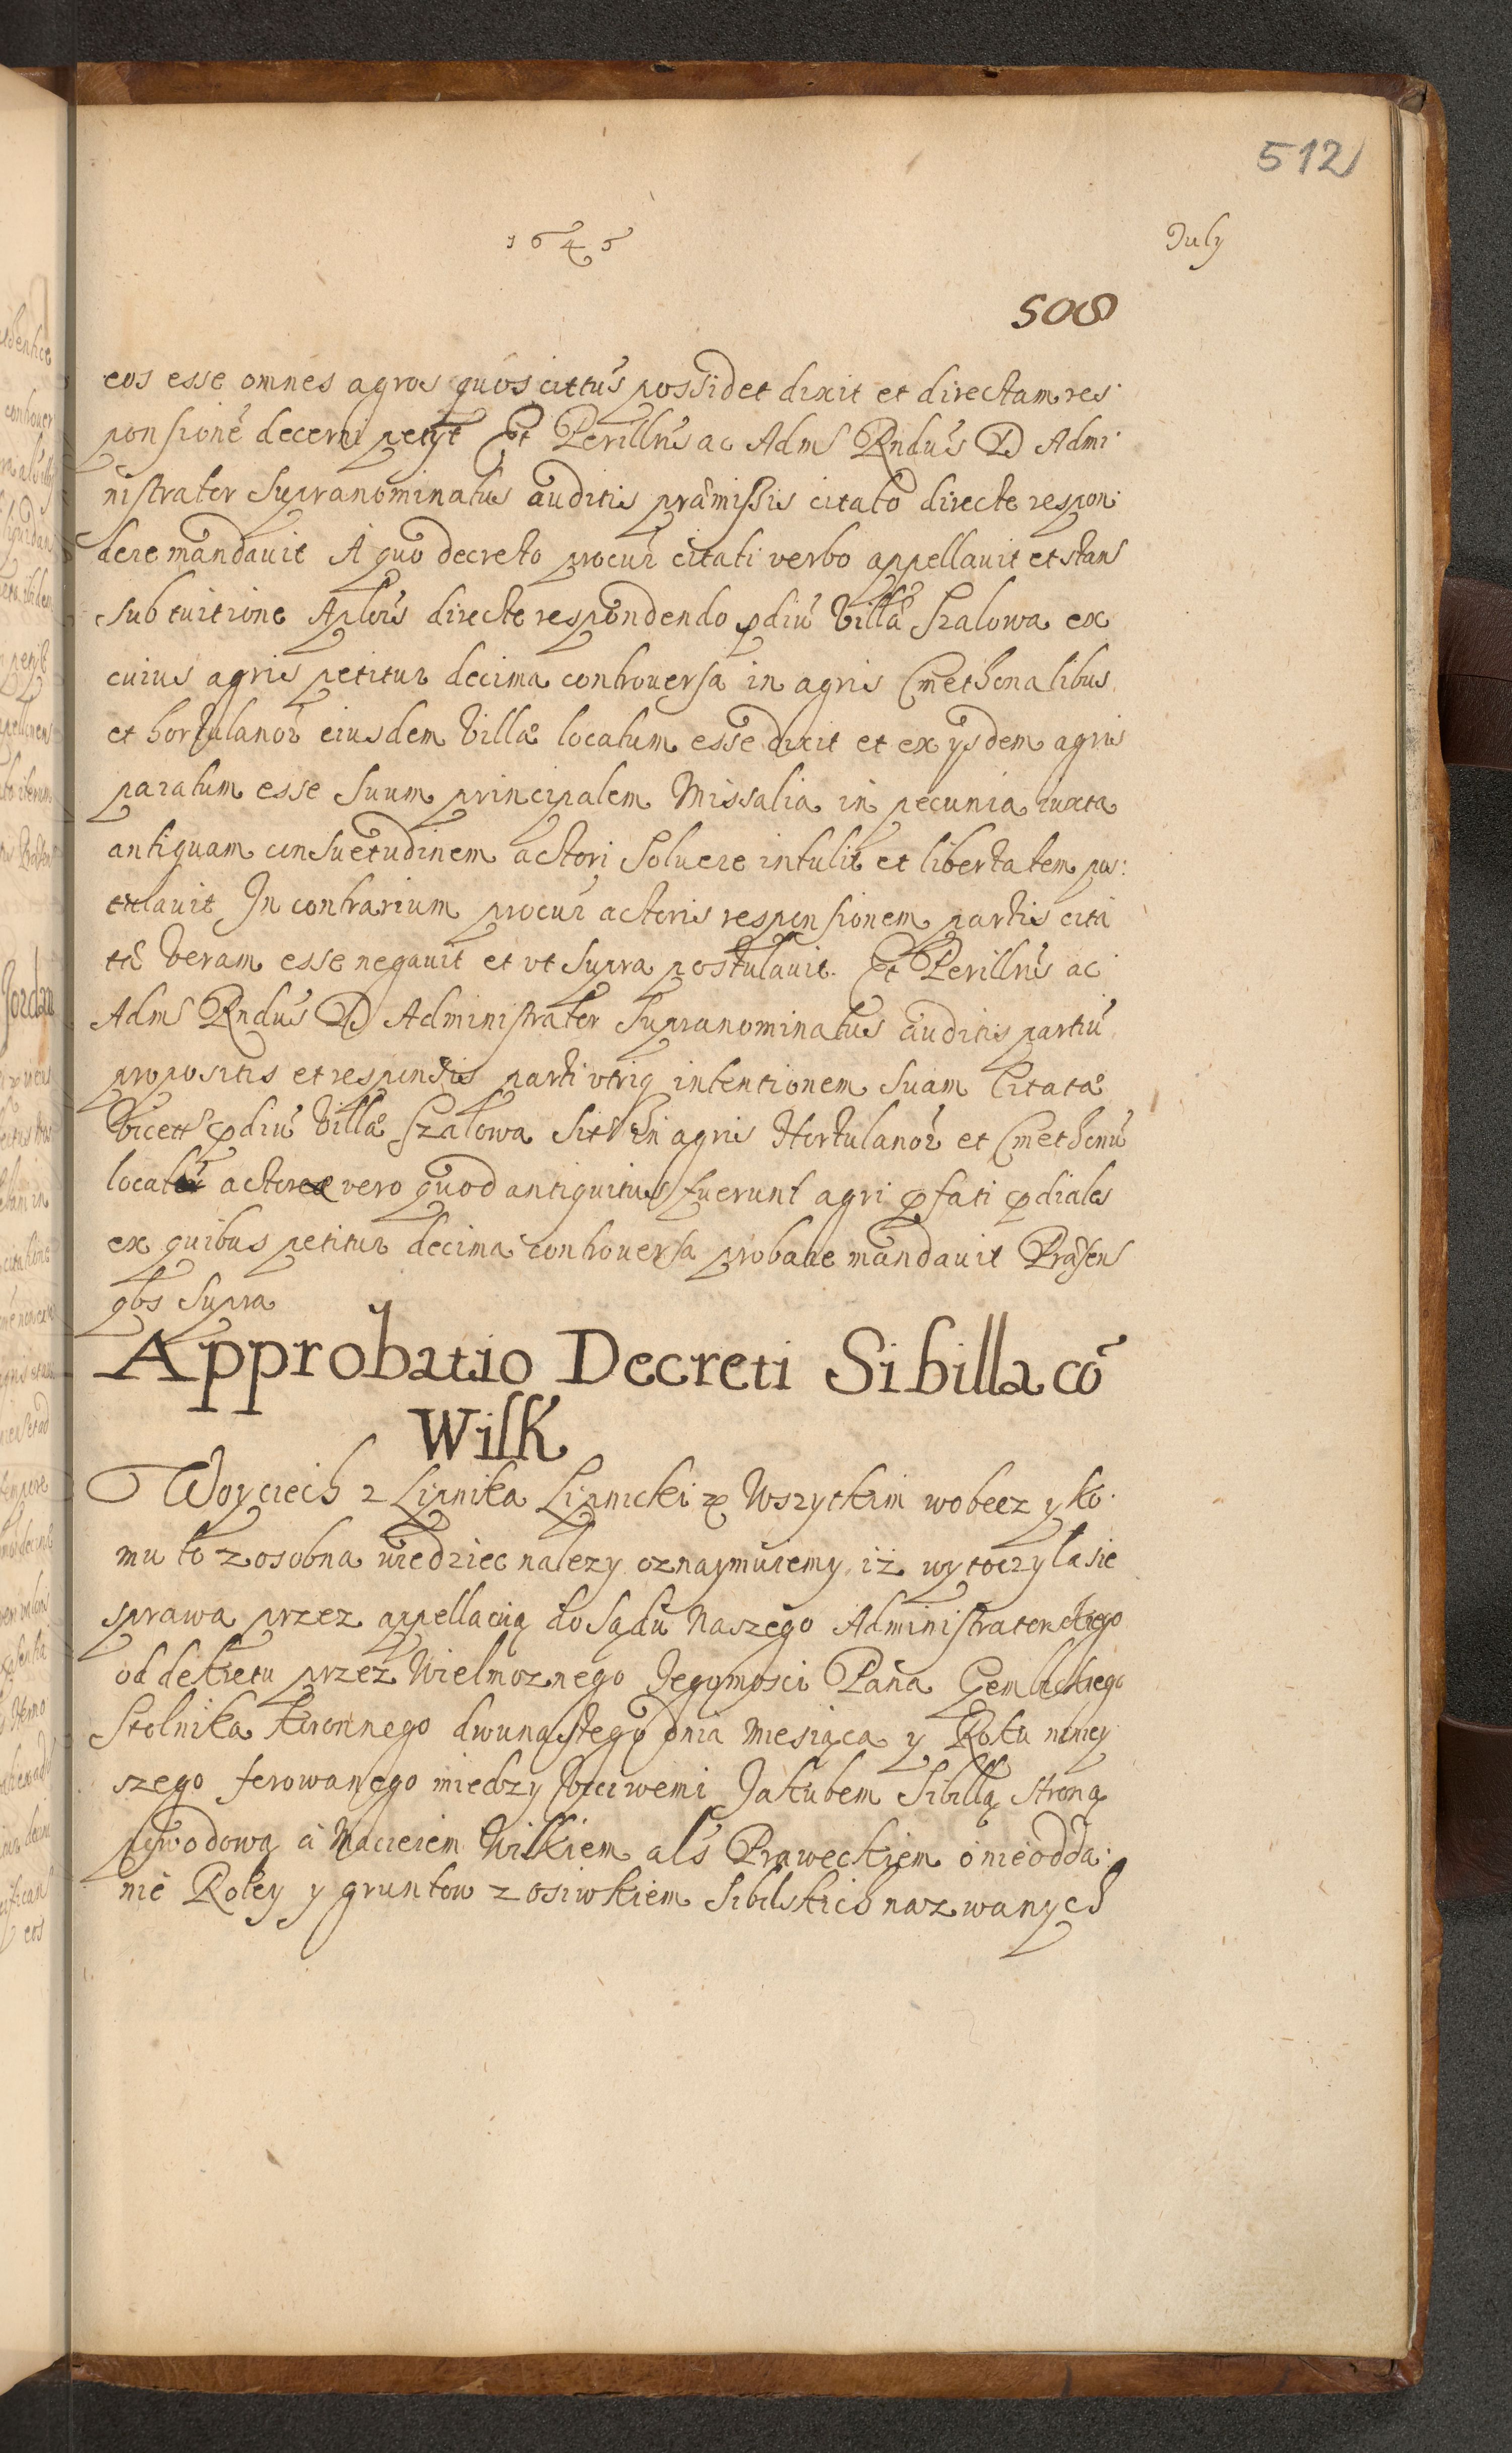 512
1645
July
508
eos esse omnes agros quos cittus possidet dixit et directam res:
ponsionē decerni petyt Et Perillrīs ac Adms Rndūs D Admi:
nistrator Supranominatus auditis præmissis citato directe respon:
dere mandavit A quo decreto procur citati verbo appellavit et stans
sub tuitione Aplōrs directe respondendo pdiū Villæ Szalowa ex
cuius agris petitur decima controuersa in agris Cmethonalibus
et hortulanor eiusdem Villæ locatum esse dixit et ex ysdem agris
paratum esse Suum principalem Missalia in pecunia iuxta
antiquam consuetudinem actori Soluere intulit et libertatem pos:
tulavit In contrarium procur actoris responsionem partis cita
tæ veram esse negavit et vt Supra postulavit. Et Perillrīs ac
Adms Rndūs D Administrator Supranominatus auditis partiū
propositis et responsis parti vtriq intentionem Suam Citatæ
pdiū Villæ Szalowa Sit in agris Hortulanor et Cmethonū
actorea vero quod antiquitus fuerunt agri pfati pdiales
ex quibus petitur decima controuersa probare mandavit Præsen
qbs Supra
Approbatio Decreti Sibilla cō
Wilk
Woyciech z Lipnika Lipnicki Wszytkim wobecz y ko:
mu to zosobna wiedziec nalezy oznaymuiemy iż wytoczyla sie
sprawa przez appellacią do Sądu Naszego Administratorskiego
od dekretu przez Wielmoznego Jegomosci Pana Gembickiego
Stolnika koronnego dwunastego dnia miesiąca y Roku niniey
szego ferowanego miedzy Poczciwemi Jakubem Sibillą stroną
powodową a Macieiem Wilkiem als Praweckiem o nieodda:
nie Roley y gruntow z osiwkiem Sibilskich nazwanych